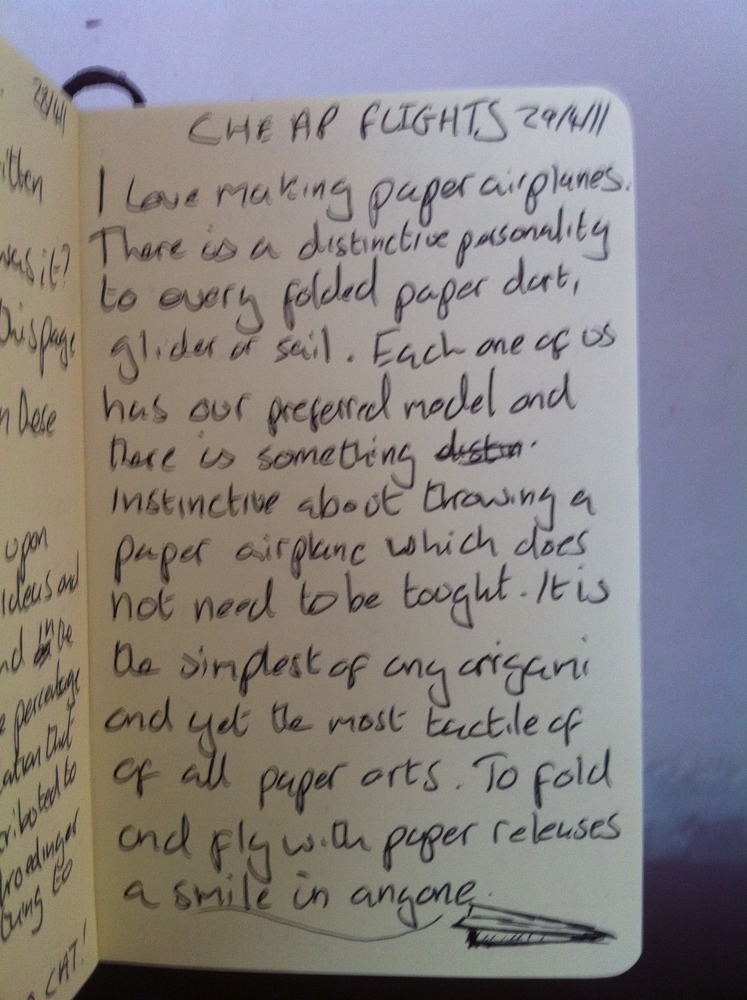 28/4/
itten
was it?
this page
n these
upon
ideas and
nd in the
e percentage
ation that
ributed to
hroedinger
to
CAT!
CHEAP FLIGHTS 29/4/11
I Love making paper airplanes.
There is a distinctive personality
to every folded paper dart,
glider or sail. Each one of us
has our preferred model and
there is something distin
instinctive about throwing a
paper airplane which does
not need to be taught. It is
the simplest of any origami
and yet the most tactile of
of all paper arts. To fold
and fly with paper releases
a smile in anyone.